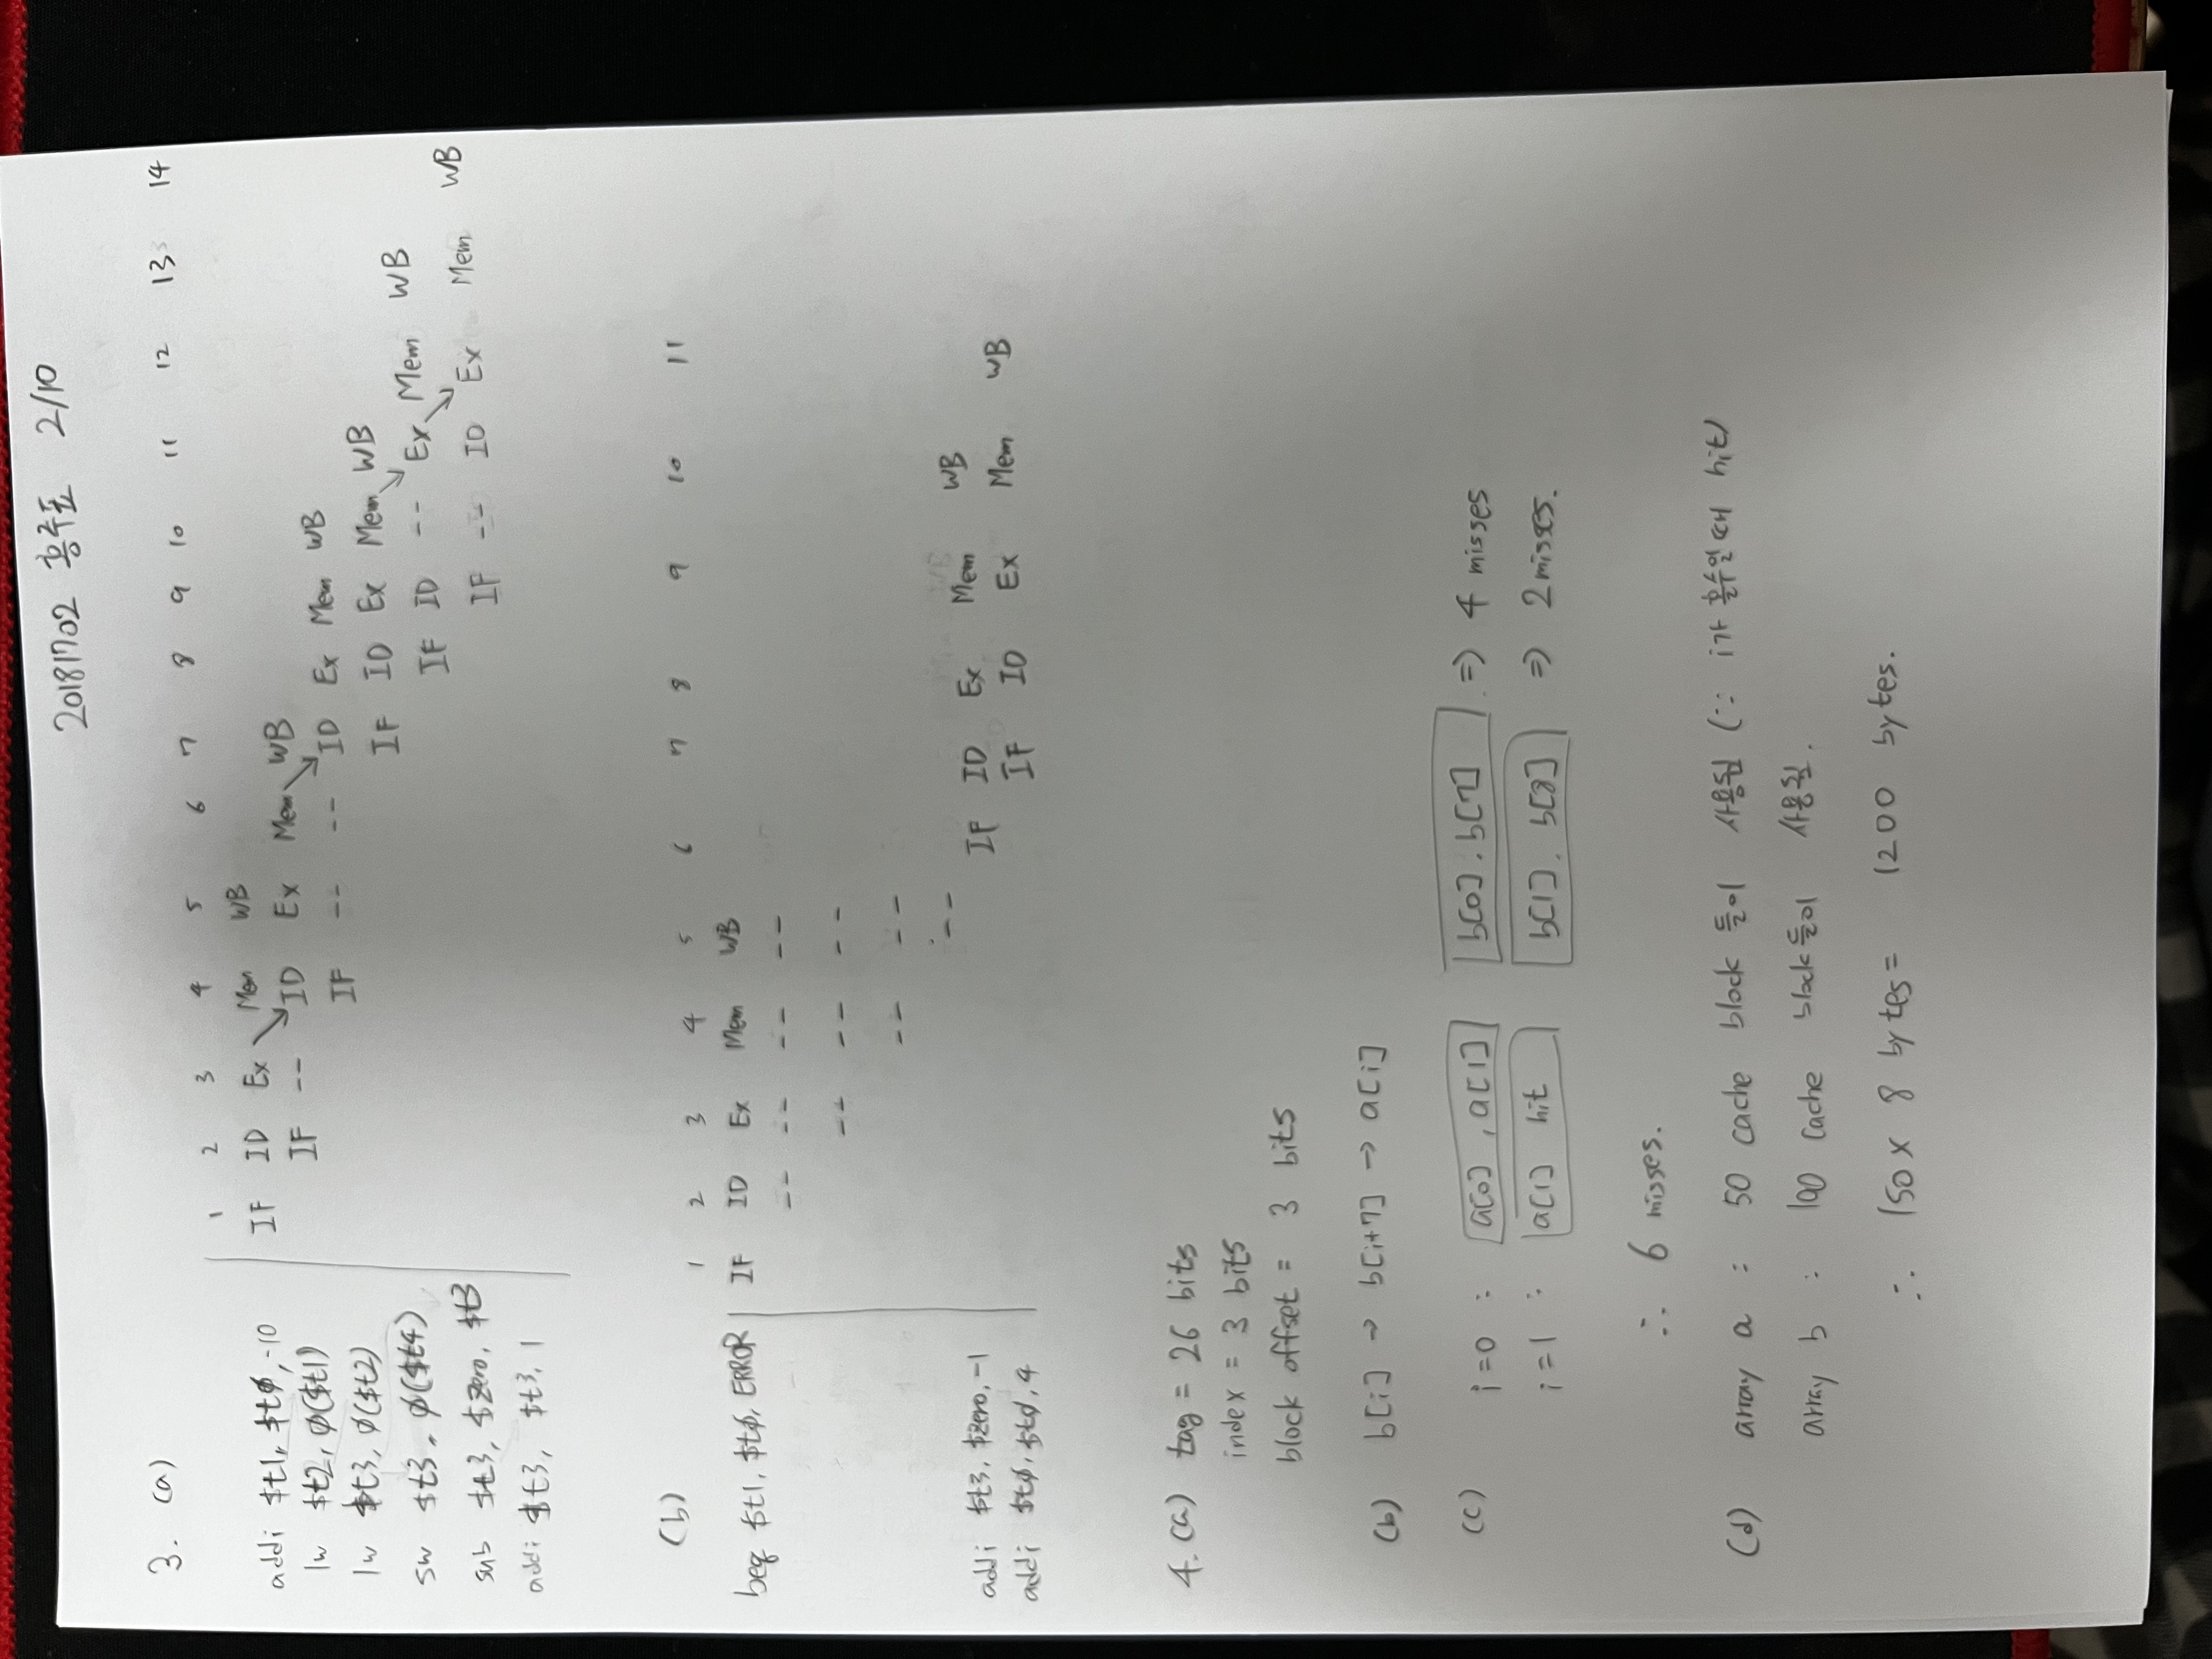 20181702 홍주표 2/10
3. (a)
1 2 3 4 5 6 7 8 9 10 11 12 13 14
addi $t1, $t0, -10 IF ID Ex Mem WB
lw $t2, 0($t1) IF -- ID Ex Mem WB
lw $t3, 0($t2) IF -- -- ID Ex Mem WB
sw $t3, 0($t4) IF ID Ex Mem WB
sub $t3, $zero, $t3 IF ID -- Ex Mem WB
addi $t3, $t3, 1 IF -- ID Ex Mem WB
(b)
1 2 3 4 5 6 7 8 9 10 11
beq $t1, $t0, ERROR IF ID Ex Mem WB
-- -- -- --
-- -- --
-- --
--
addi $t3, $zero, -1 IF ID Ex Mem WB
addi $t0, $t0, 4 IF ID Ex Mem WB
4. (a) tag = 26 bits
index = 3 bits
block offset = 3 bits
(b) b[i] → b[i+7] → a[i]
(c) i=0 : a[0], a[1] b[0], b[7] ⇒ 4 misses
i=1 : a[1] hit b[1], b[8] ⇒ 2 misses.
∴ 6 misses.
(d) array a : 50 cache block 들이 사용됨 (∵ i가 홀수일 때 hit)
array b : 100 cache block들이 사용됨.
∴ 150 x 8 bytes = 1200 bytes.